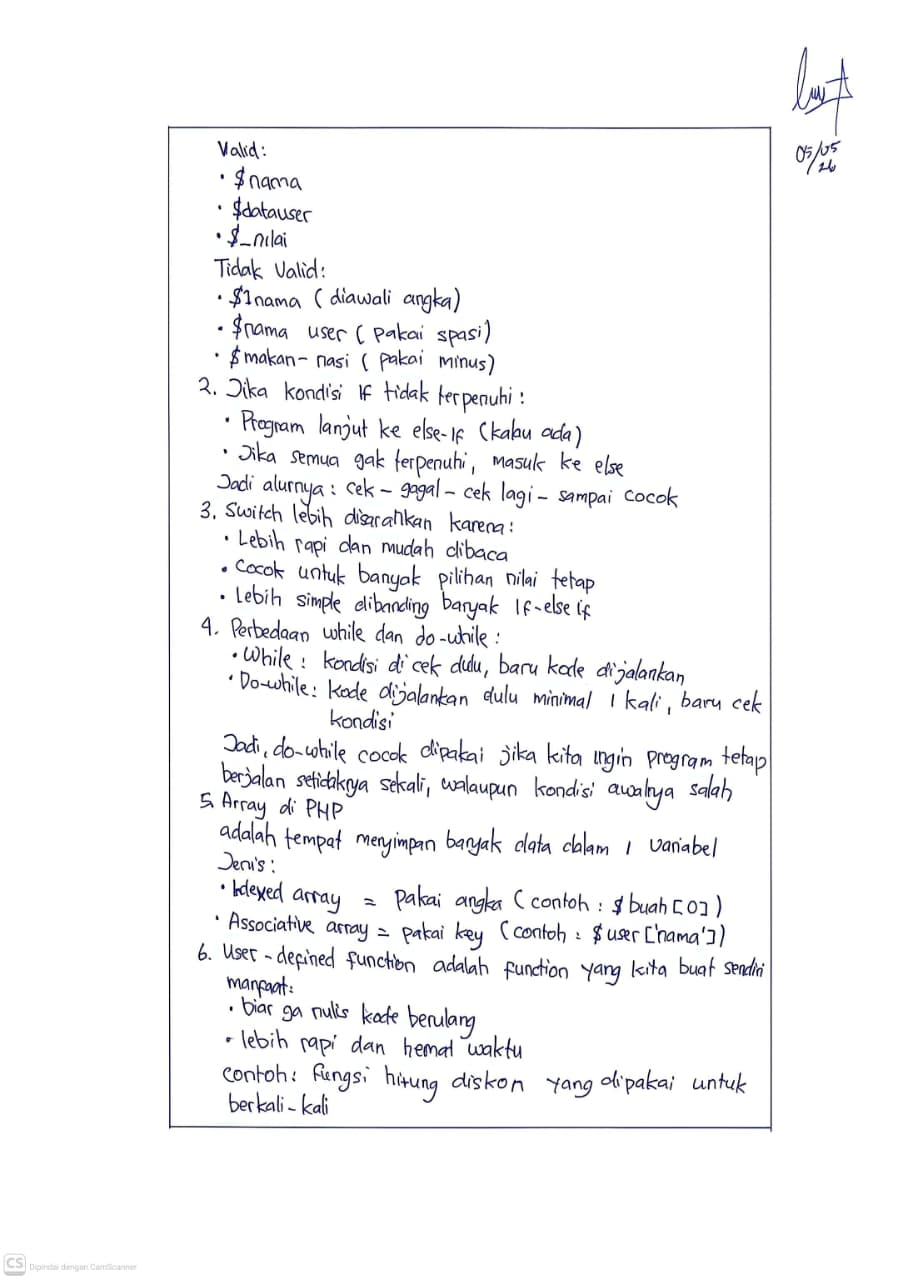 05/05
/26
Valid:
• $nama
• $datauser
• $_nilai
Tidak Valid:
• $1nama (diawali angka)
• $nama user (pakai spasi)
• $makan-nasi (pakai minus)
2. Jika kondisi If tidak terpenuhi:
• Program lanjut ke else-If (kalau ada)
• Jika semua gak terpenuhi, masuk ke else
Jadi alurnya: cek - gagal - cek lagi - sampai cocok
3. Switch lebih disarankan karena:
• Lebih rapi dan mudah dibaca
• Cocok untuk banyak pilihan nilai tetap
• Lebih simple dibanding banyak If-else if
4. Perbedaan while dan do-while:
• While: kondisi di cek dulu, baru kode dijalankan
• Do-while: kode dijalankan dulu minimal 1 kali, baru cek
kondisi
Jadi, do-while cocok dipakai jika kita ingin program tetap
berjalan setidaknya sekali, walaupun kondisi awalnya salah
5. Array di PHP
adalah tempat menyimpan banyak data dalam 1 variabel
Jenis:
• Indexed array = pakai angka (contoh: $buah[0])
• Associative array = pakai key (contoh: $user['nama'])
6. User-defined function adalah function yang kita buat sendiri
manfaat:
• biar ga nulis kode berulang
• lebih rapi dan hemat waktu
contoh: fungsi hitung diskon yang dipakai untuk
berkali-kali
CS Dipindai dengan CamScanner